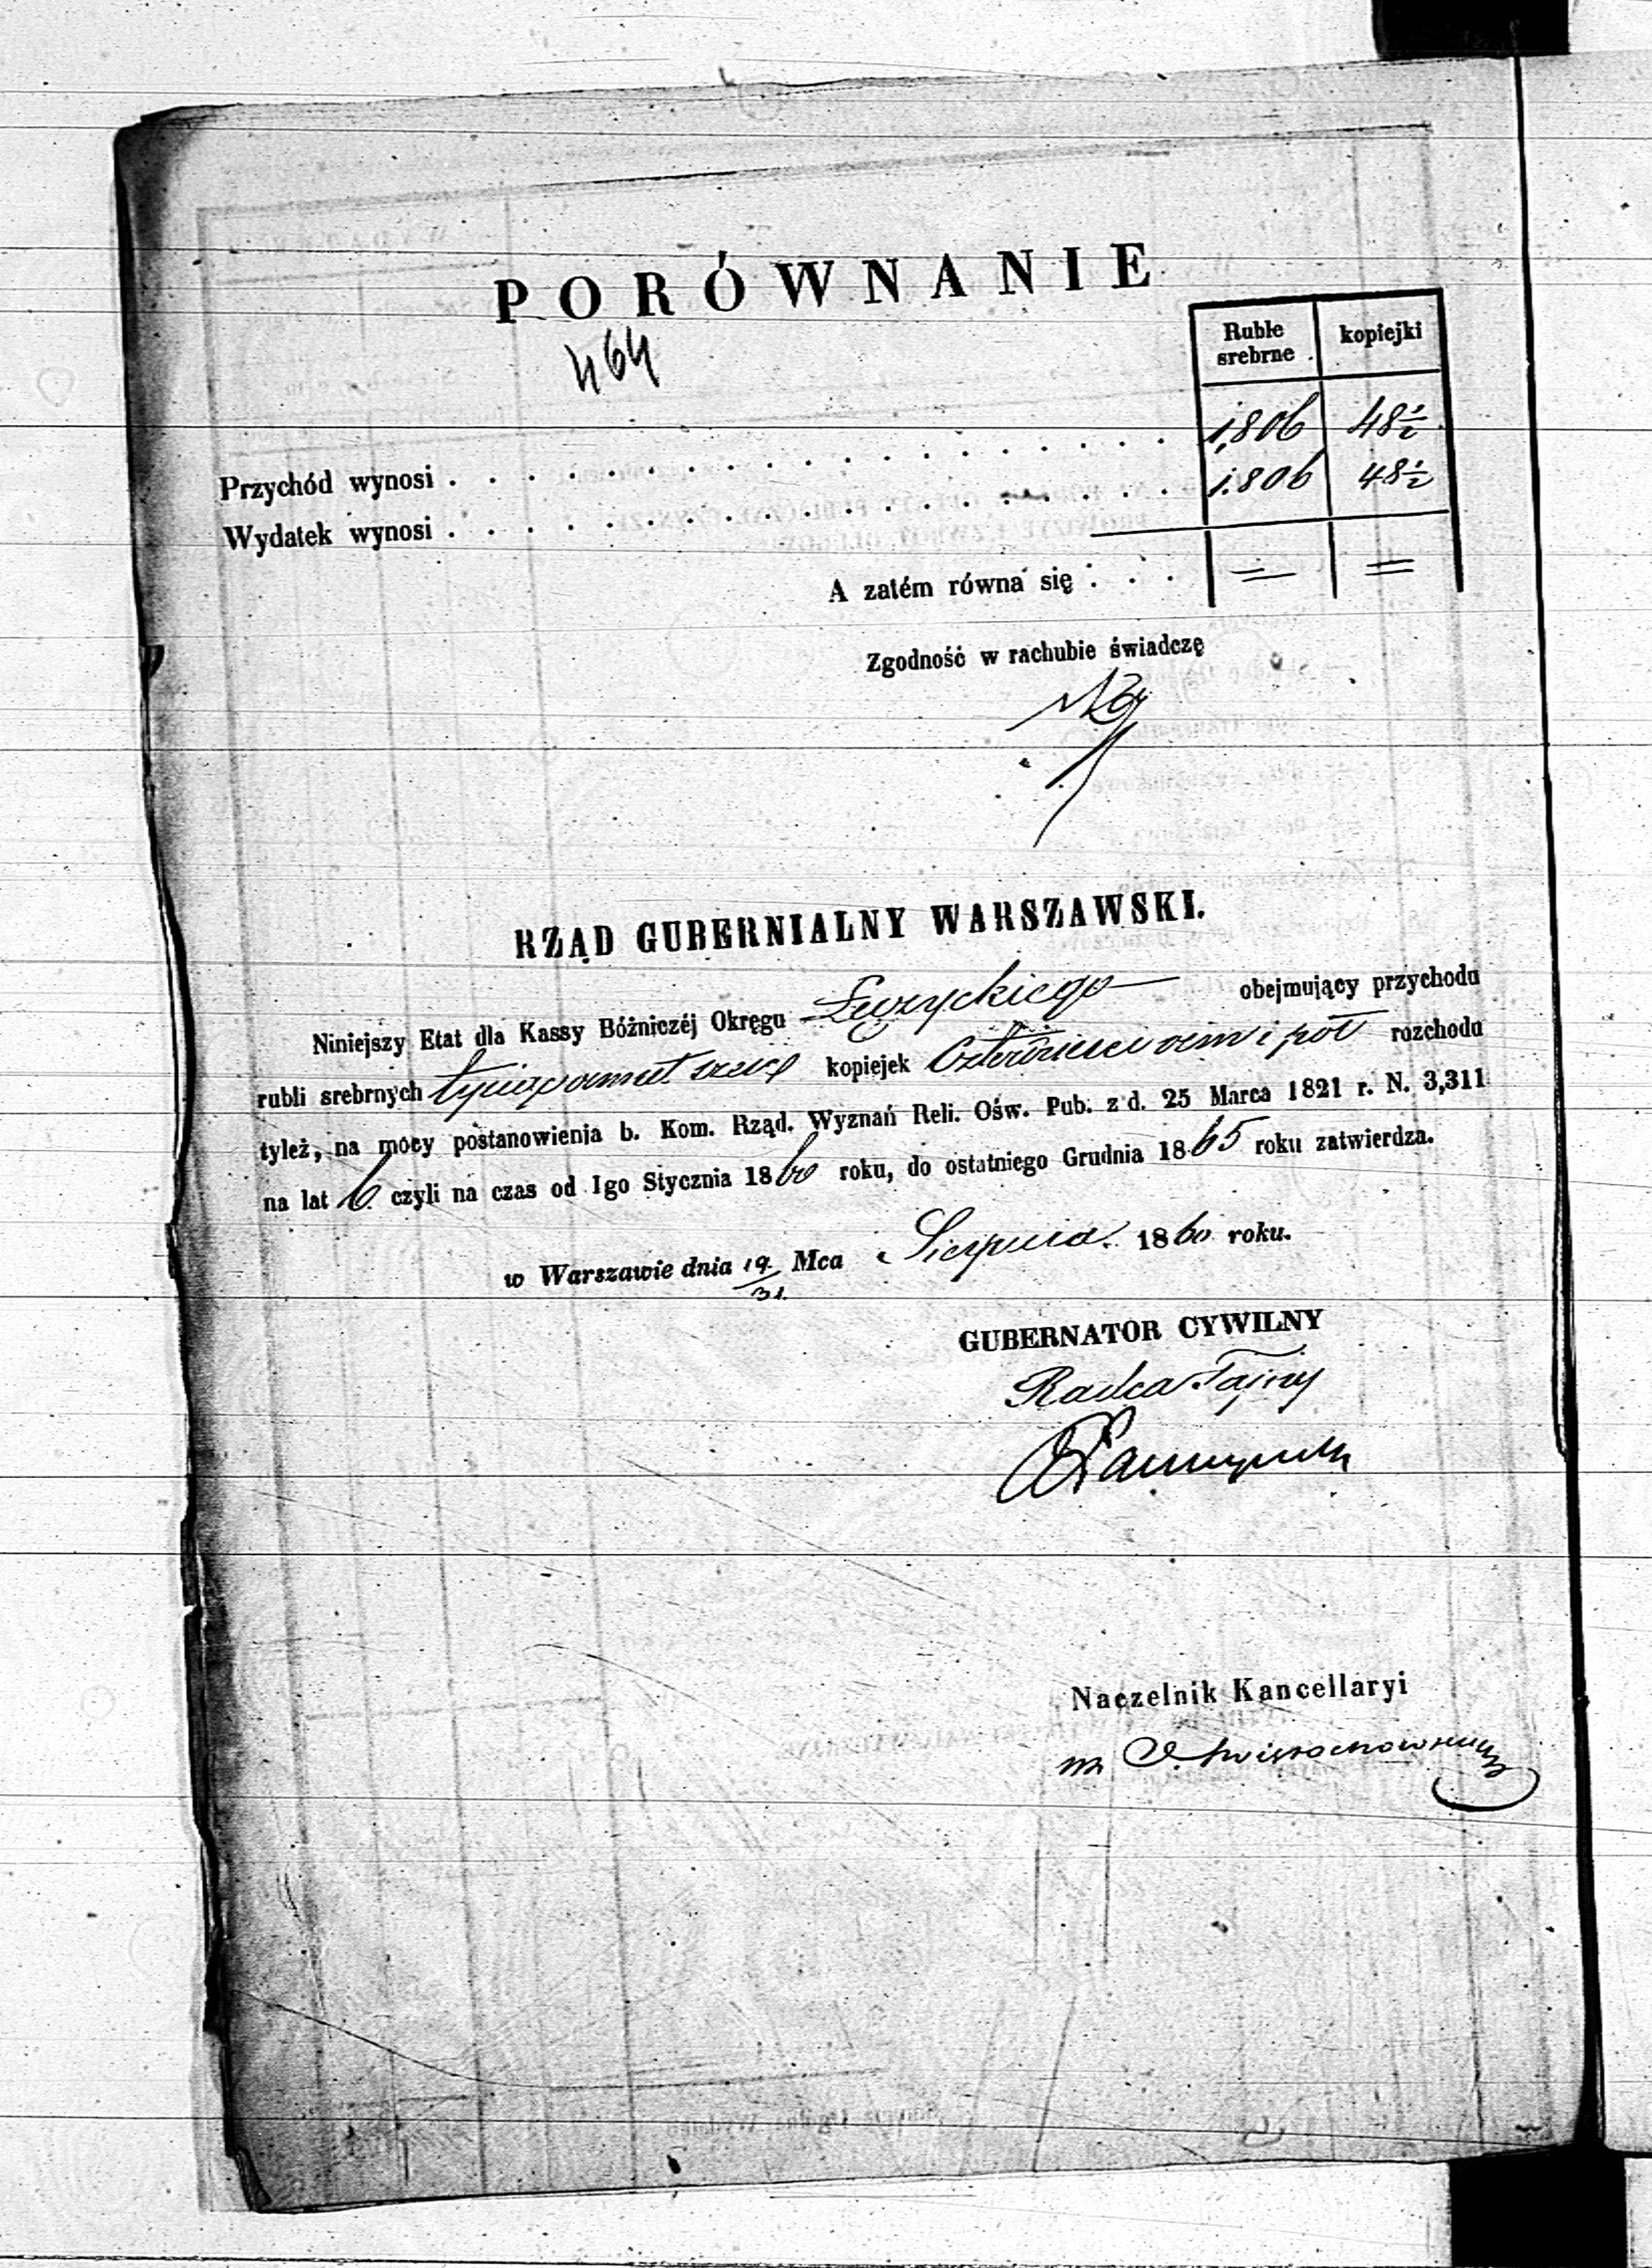 PORÓWNANIE
464
Ruble srebrne kopiejki
Przychód wynosi . . . . 1,806 48½
Wydatek wynosi . . . . 1.806 48½
A zatém równa się . . . = =
Zgodność w rachubie świadczę
RZĄD GUBERNIALNY WARSZAWSKI.
Niniejszy Etat dla Kassy Bóżniczéj Okręgu Łęczyckiego obejmujący przychodu
rubli srebrnych tysiąc ośmset sześć kopiejek Czterdzieści ośm i pół rozchodu
tyleż, na mocy postanowienia b. Kom. Rząd. Wyznań Reli. Ośw. Pub. z d. 25 Marca 1821 r. N. 3,311
na lat 6. czyli na czas od Igo Stycznia 1860 roku, do ostatniego Grudnia 1865 roku zatwierdza.
w Warszawie dnia 19/31. Mca Sierpnia. 1860 roku.
GUBERNATOR CYWILNY
Radca Tajny
Naczelnik Kancellaryi